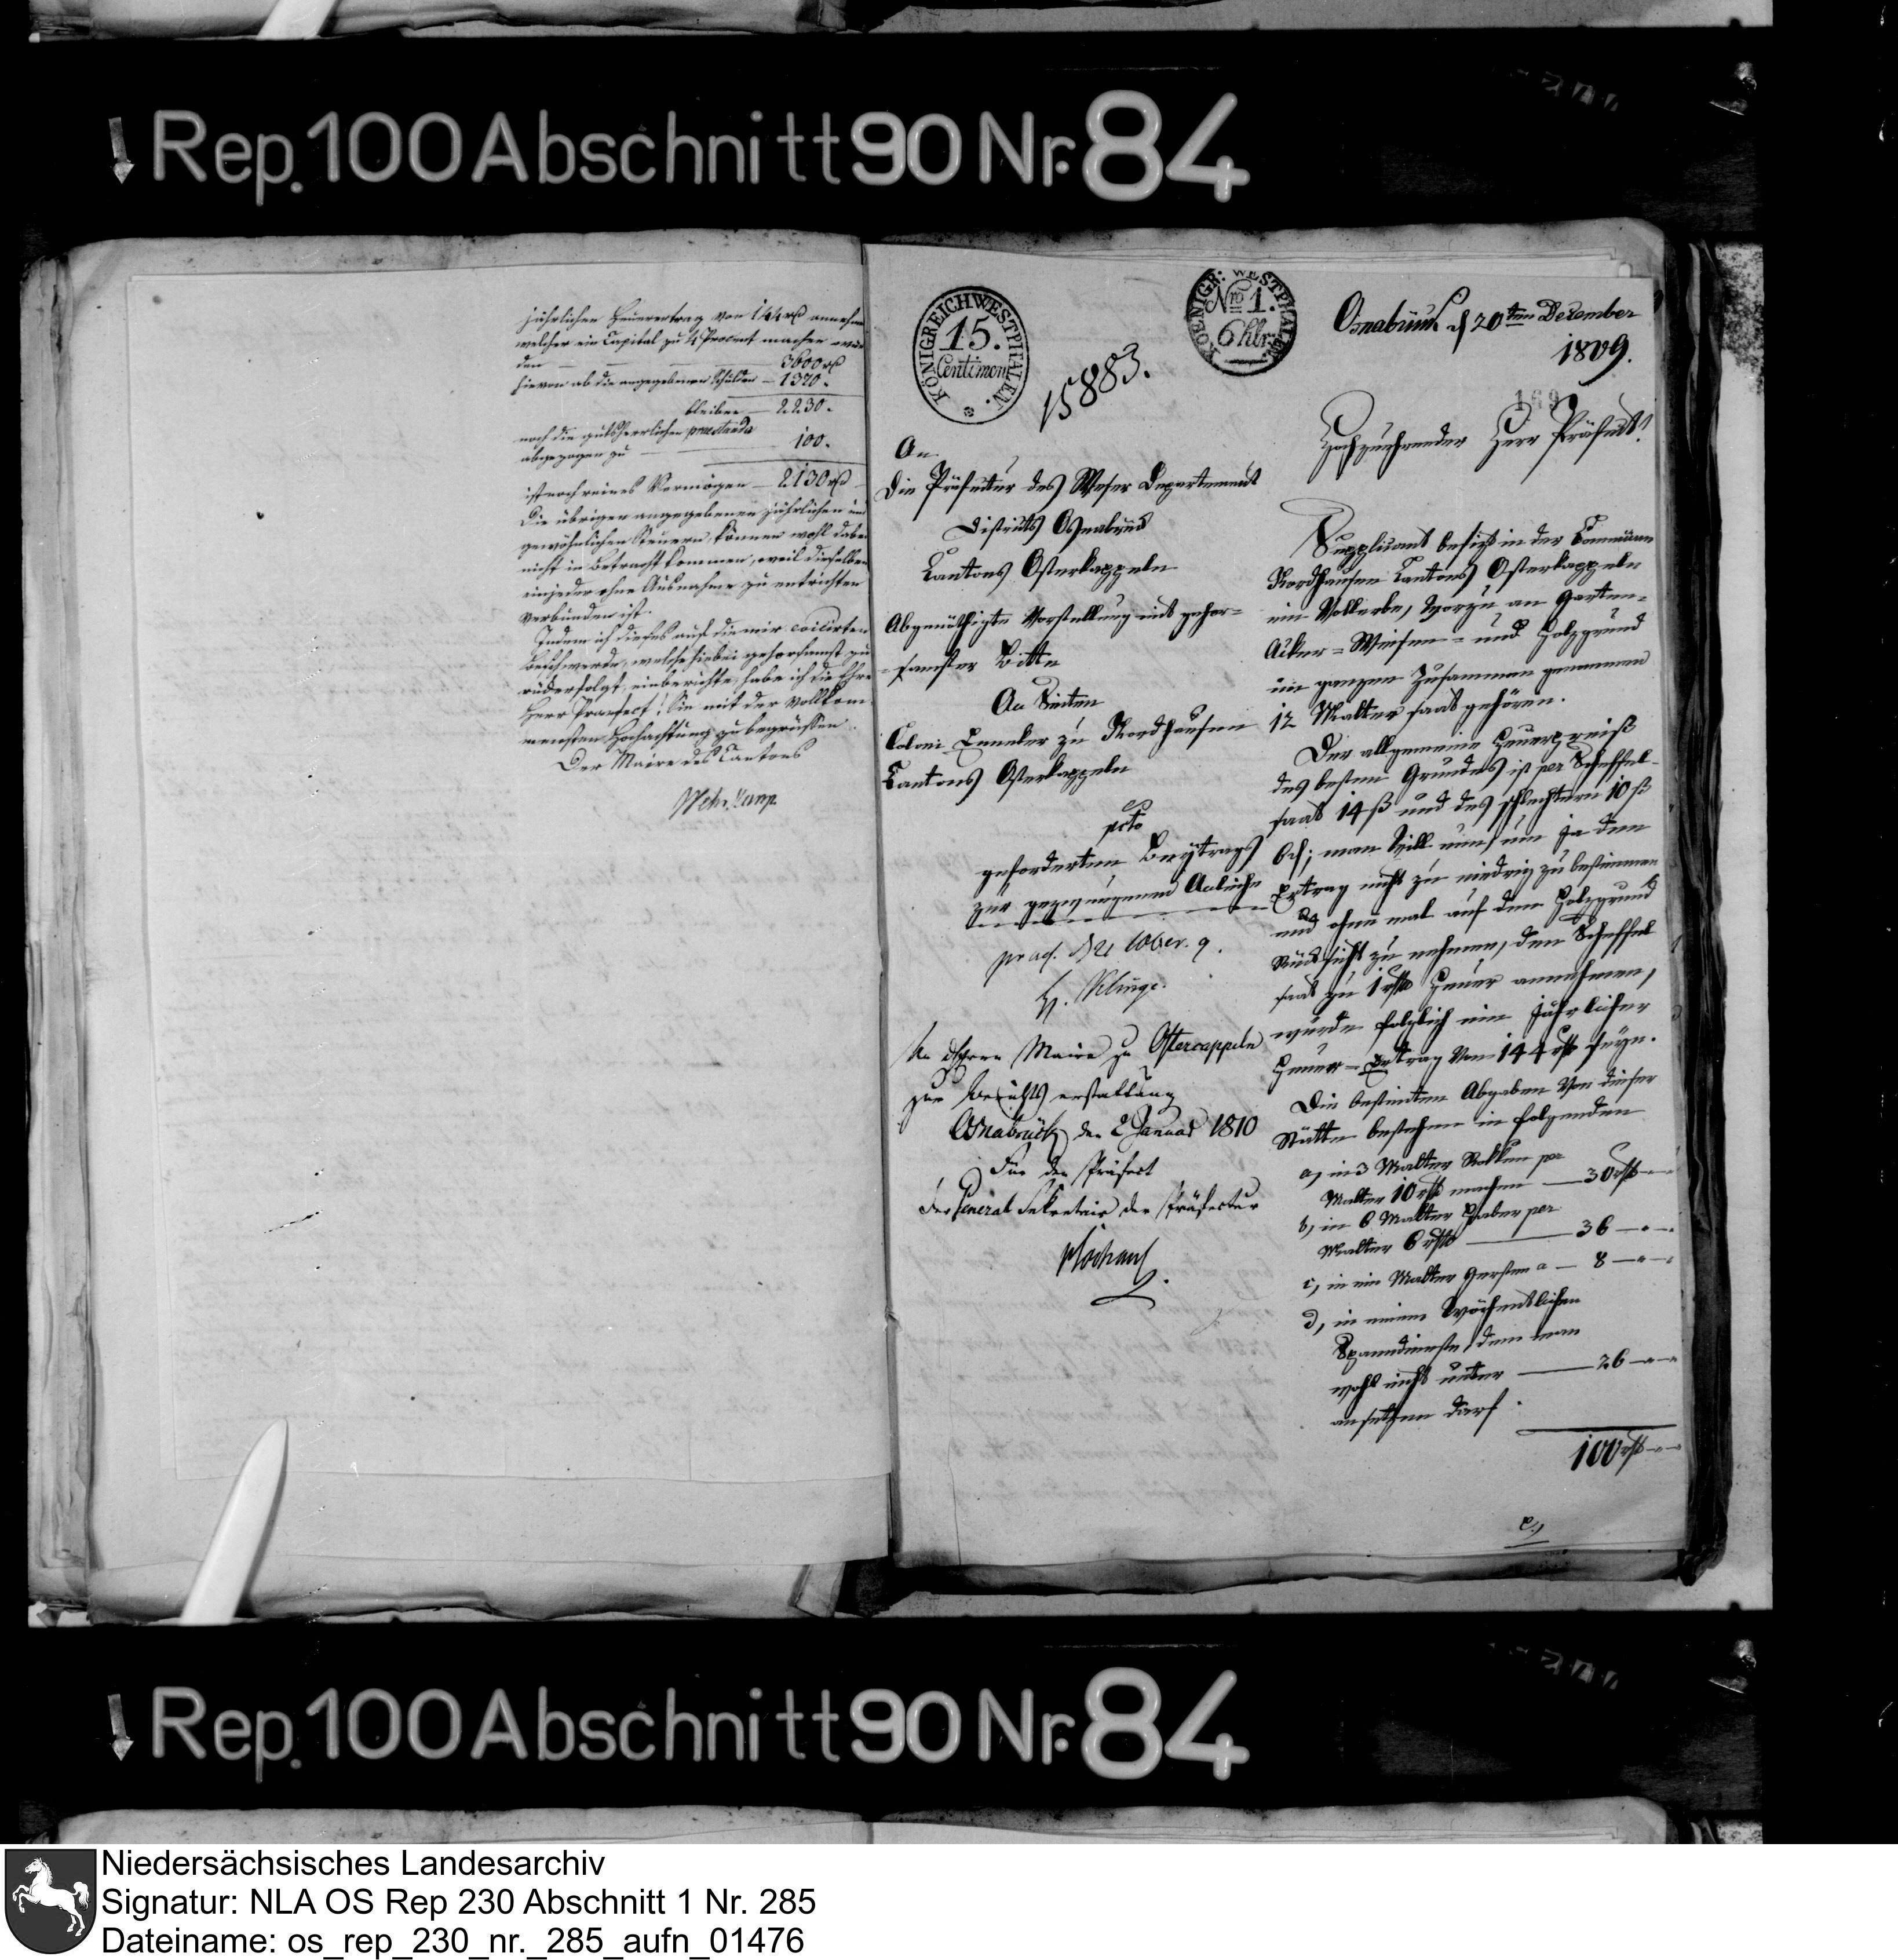 Rep. 100 Abschnitt 90 Nr. 84
jährlichen Heuerertrag von 144 rℓ annehm
welcher ein Capital zu 4 Procent machen wür
den — 3600 rℓ
hievon ab die angegebenen Schulden — 1370.
bleiben — 2230.
noch die gutsherrlichen praestanda
abgezogen zu — 100.
ist noch reines Vermögen — 2130 rℓ
Die übrigen angegebenen jährlichen und
gewöhnlichen Steuern können wohl dabei
nicht in Betracht kommen, weil dieselben
ein jeder ohne Ausnahme zu entrichten
verbunden ist.
Indem ich dieses auf die mir
Beschwerde, welche hiebei gehorsamst zu
rückerfolgt, einberichte, habe ich die Ehre
Herr Praefect! Sie mit der vollkom
mensten Hochachtung zu begrüssen.
Der Maire des Cantons
KÖNIGREICH WESTPHALEN.
15.
Centimen
KOENIGR: WESTPHALEN.
Nro 1.
6 hlr.
15883.
Osnabrück d 20ten December
1809.
169
An
Die Präfectur des Weser Departement
Districts Osnabrück
Cantons Osterkappeln
Abgenöthigte Vorstellung mit gehor=
=samster Bitte
An Seiten
Coloni Enneker zu Nordhausen
Cantons Osterkappeln
pcto
geforderten Beytrags
zur gezwungenen Anleihe
praes. d 21 10ber. 9.
An Herrn Maire zu Ostercappeln
zur Berichts erstattung
Osnabrück den 2 Januar 1810
Für den Präfect
Der General Sekretair der Präfectur
Hochzuehrender Herr Präfect!
Supplicant besitzt in der Commune
Nordhausen Cantons Osterkappeln
ein Vollerbe, worzu an Garten=
Acker= Wiesen= und Holzgrund
im ganzen zusammen genommen
12 Malter saat gehören.
Der allgemeine Heuerpreiß
des besten Grundes ist per Scheffel-
saat 14 ß und des schlechtern 10 ß
6 d; man will nun um ja den
Ertrag nicht zu niedrig zu bestimmen
und ohne mal auf den Holzgrund
Rücksicht zu nehmen, den Scheffel
saat zu 1 rthl Heuer annehmen,
würde folglich ein jährlicher
Heuer=Ertrag von 144 rthl seyn.
Die bestimten Abgaben von dieser
Stätte bestehen in folgenden
a, in 3 Malter Rokken per
Malter 10 rthl machen — 30 rthl —
b, in 6 Malter Haber per
Malter 6 rthl — 36 —
c, in ein Malter Gersten a — 8 —
d, in einem wöchentlichen
Spanndienste, dem man
wohl nicht unter — 26 —
ansetzen darf.
100 rthl —
e,)
Rep. 100 Abschnitt 90 Nr. 84
Niedersächsisches Landesarchiv
Signatur: NLA OS Rep 230 Abschnitt 1 Nr. 285
Dateiname: os_rep_230_nr._285_aufn_01476